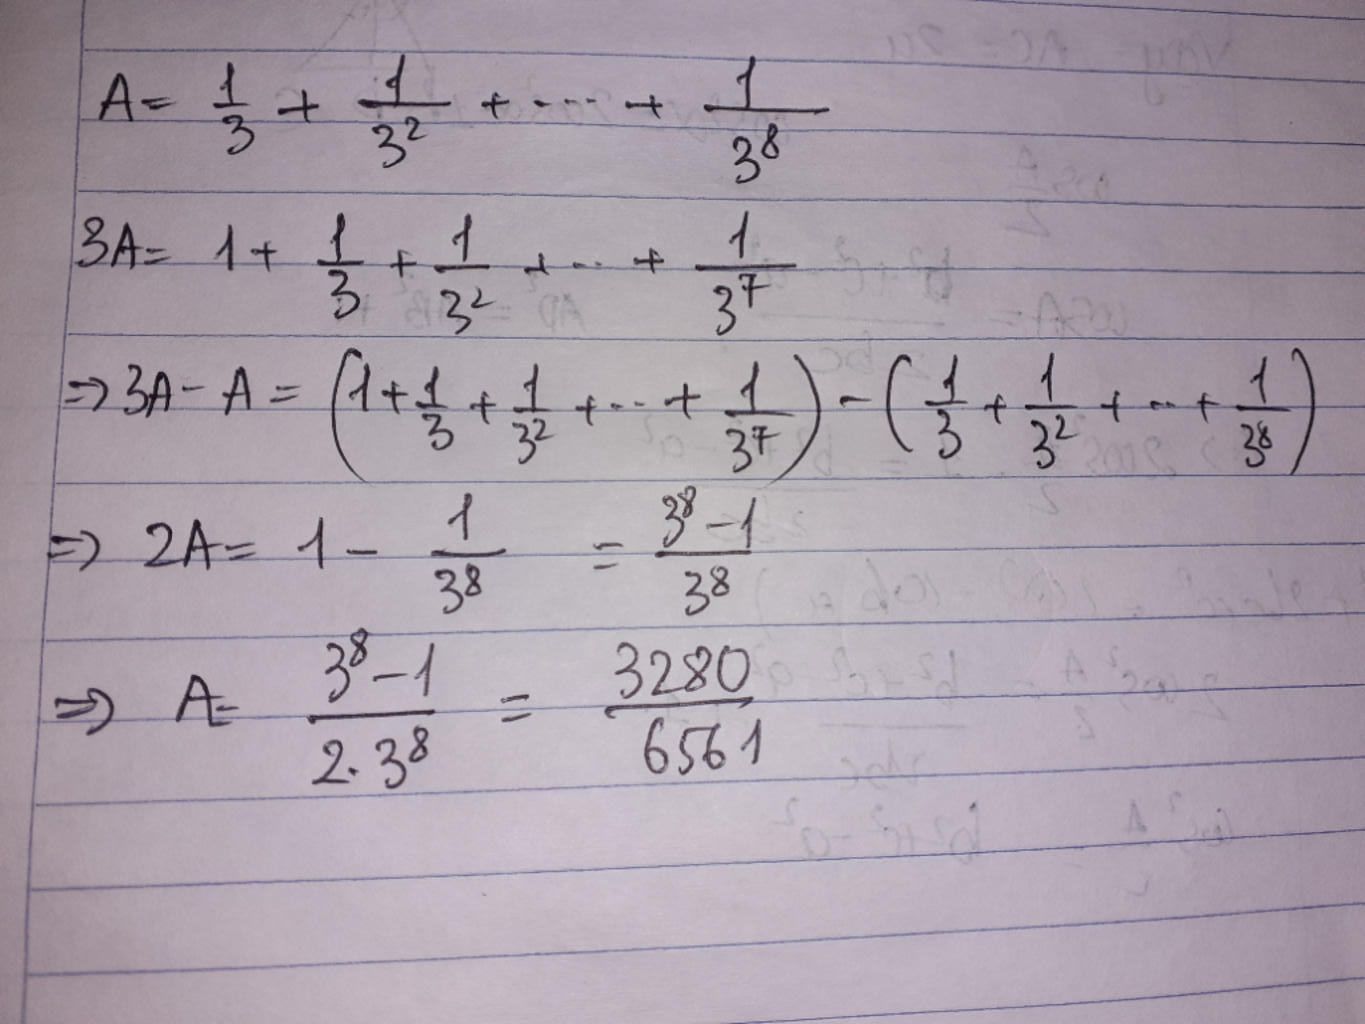 A = 1/3 + 1/3² + ... + 1/3⁸
3A = 1 + 1/3 + 1/3² + ... + 1/3⁷
⇒ 3A - A = (1 + 1/3 + 1/3² + ... + 1/3⁷) - (1/3 + 1/3² + ... + 1/3⁸)
⇒ 2A = 1 - 1/3⁸ = (3⁸ - 1)/3⁸
⇒ A = (3⁸ - 1)/(2 . 3⁸) = 3280/6561